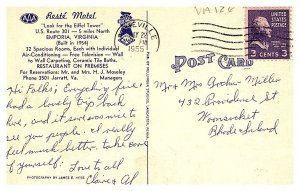 VA 126
AAA Resté Motel
"Look for the Eiffel Tower"
U.S. Route 301 — 5 miles North
EMPORIA, VIRGINIA
(Built in 1954)
32 Spacious Rooms, Each with Individual
Air-Conditioning — Free Television — Wall
to Wall Carpeting, Ceramic Tile Baths.
RESTAURANT ON PREMISES
For Reservations: Mr. and Mrs. H. J. Moseley
Phone 3501 Jarratt, Va. Managers
Hi Folks; Everything fine
had a lovely trip back
here, and it sure was nice to
see you people. I really
feel much better, take care
of yourself.
Love to all
Claire & Al
PHOTOGRAPHY BY JAMES E. HYDE
EVILLE
1955
POST CARD
3¢
Mr & Mrs Archie Miller
432 Providence St
Woonsocket
Rhode Island